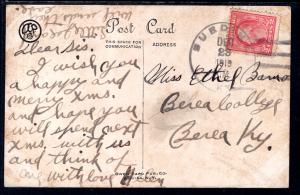 Post Card
THIS SPACE FOR
COMMUNICATION
ADDRESS
Dear Sis.
I wish you
a happy and
merry xms.
and hope you
will spend next
xms. with us
and think of
with love
BURD
DEC
23
KY.
Miss Ethel
Berea College
Berea Ky.
OWEN CARD PUB. CO.